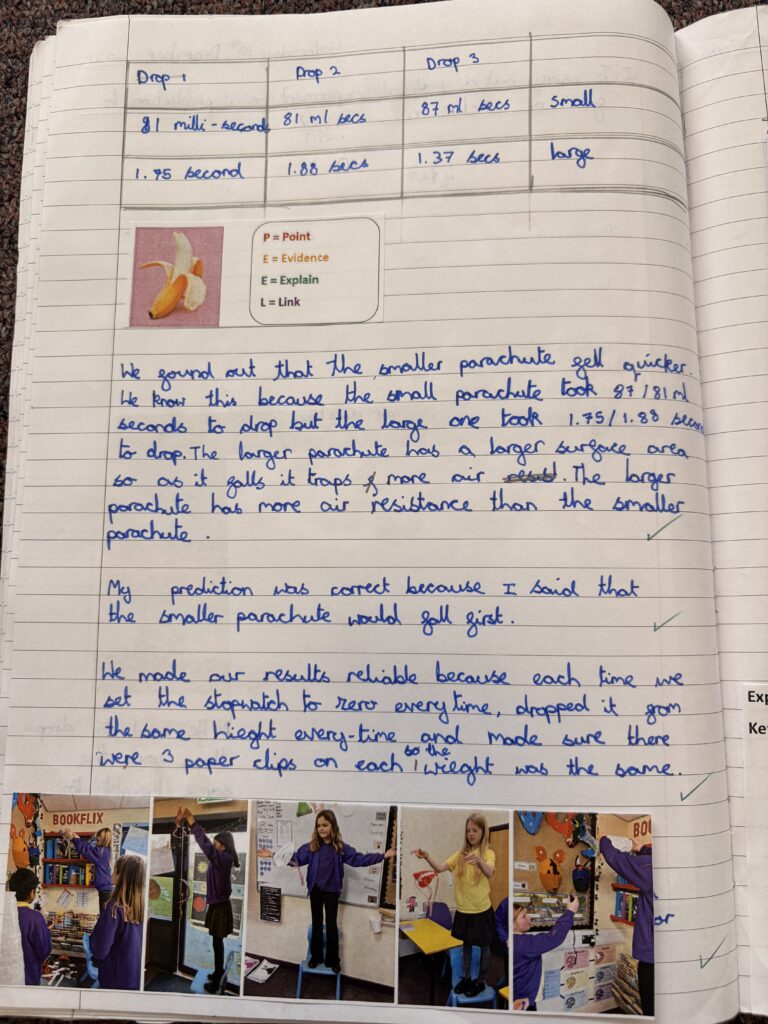 Drop 1 Drop 2 Drop 3
81 milli-seconds 81 ml secs 87 ml secs small
1.75 second 1.88 secs 1.37 secs large
P = Point
E = Evidence
E = Explain
L = Link
We found out that the smaller parachute fell quicker.
We know this because the small parachute took 87/81 ml
seconds to drop but the large one took 1.75/1.88 secon
to drop. The larger parachute has a larger surface area
so as it falls it traps more air. The larger
parachute has more air resistance than the smaller
parachute.
My prediction was correct because I said that
the smaller parachute would fall first.
We made our results reliable because each time we
set the stopwatch to zero every time, dropped it from
the same hieght every-time and made sure there
were 3 paper clips on each so the wieght was the same.
BOOKFLIX
BO
or
Exp
Ke